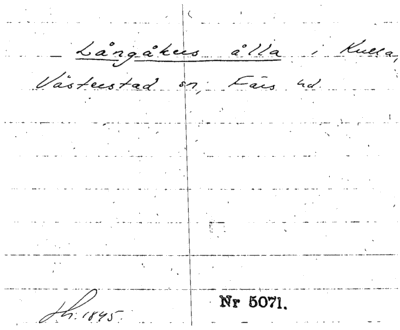 Långåkers ålla i Kulla,
Västerstad sn, Färs hd.
Sh. 1845.
Nr 5071.